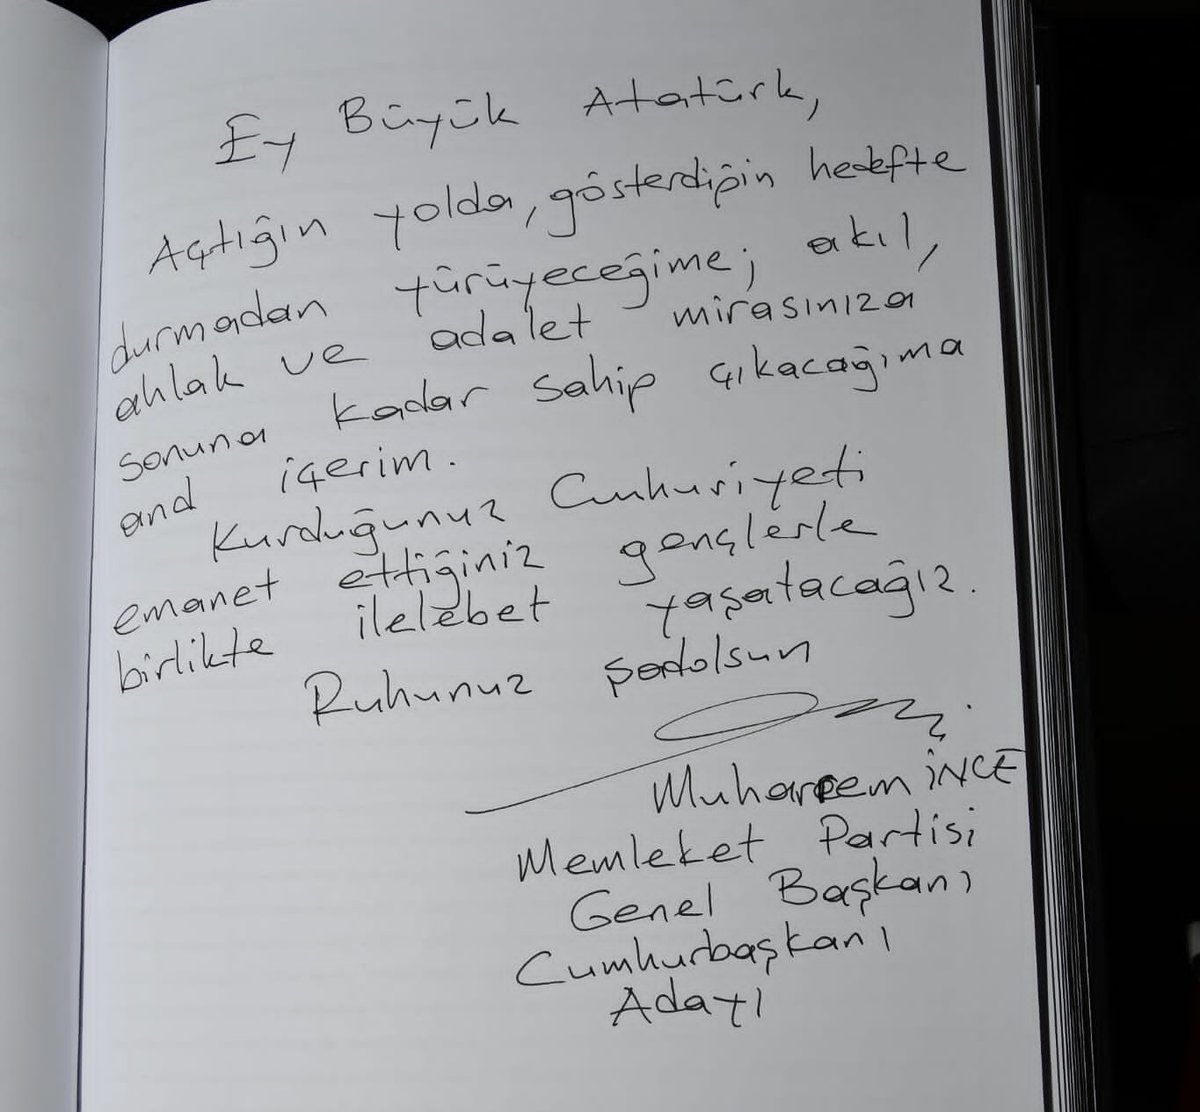 Ey Büyük Atatürk,
Açtığın yolda, gösterdiğin hedefte
durmadan yürüyeceğime; akıl,
ahlak ve adalet mirasınıza
sonuna kadar sahip çıkacağıma
and içerim.
Kurduğunuz Cumhuriyeti
emanet ettiğiniz gençlerle
birlikte ilelebet yaşatacağız.
Ruhunuz şadolsun
Muharrem İNCE
Memleket Partisi
Genel Başkanı
Cumhurbaşkanı
Adayı